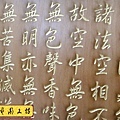 諸法空相
故空中無色
無色聲香味
無明亦無
無苦集滅